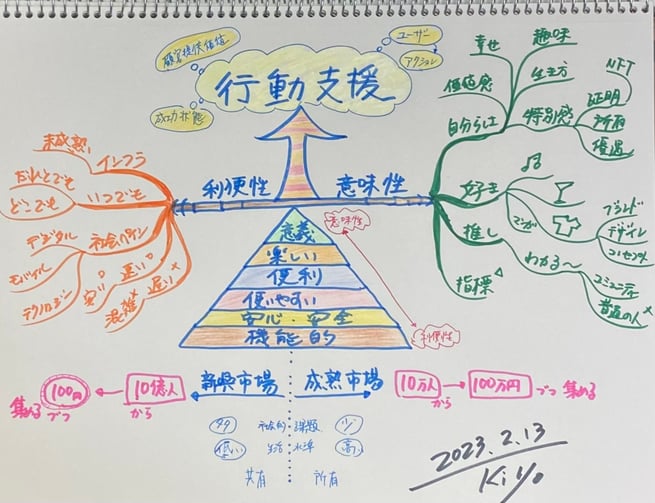 顧客提供価値
成功状態
ユーザー
アクション
行動支援
利便性
意味性
未成熟
インフラ
だれとでも
どこでも
いつでも
デジタル
モバイル
テクノロジー
社会ペイン
安い
速い
混雑
遅い
幸せ
趣味
価値感
生き方
自分らしさ
特別感
NFT
証明
所有
優遇
好き
でが
ブランド
デザイン
コンセプト
推し
わかる〜
コミュニティ
普通の人
指標
意義
楽しい
便利
使いやすい
安心・安全
機能的
意味性
利便性
新興市場
成熟市場
10億人
から
100円
づつ
集める
10万人
から
100万円
づつ
集める
多
社会的課題
少
低い
生活水準
高い
共有
所有
2023.2.13